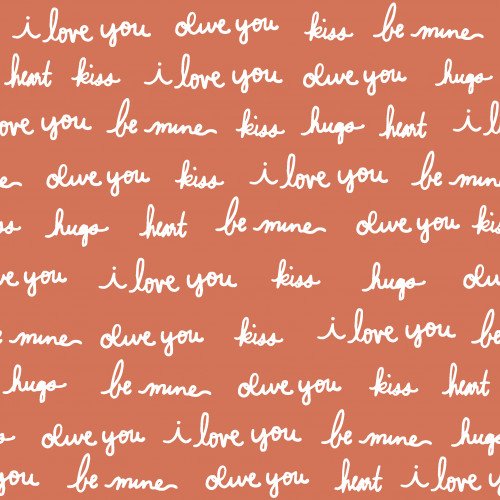 i love you olive you kiss be mine
heart kiss i love you olive you hugs
ove you be mine kiss hugs heart i l
e olive you kiss i love you be min
ss hugs heart be mine olive you kis
ve you i love you kiss hugs oli
mine olive you kiss i love you be
hugs be mine olive you kiss heart
olive you i love you be mine hugs
you be mine olive you heart i love y